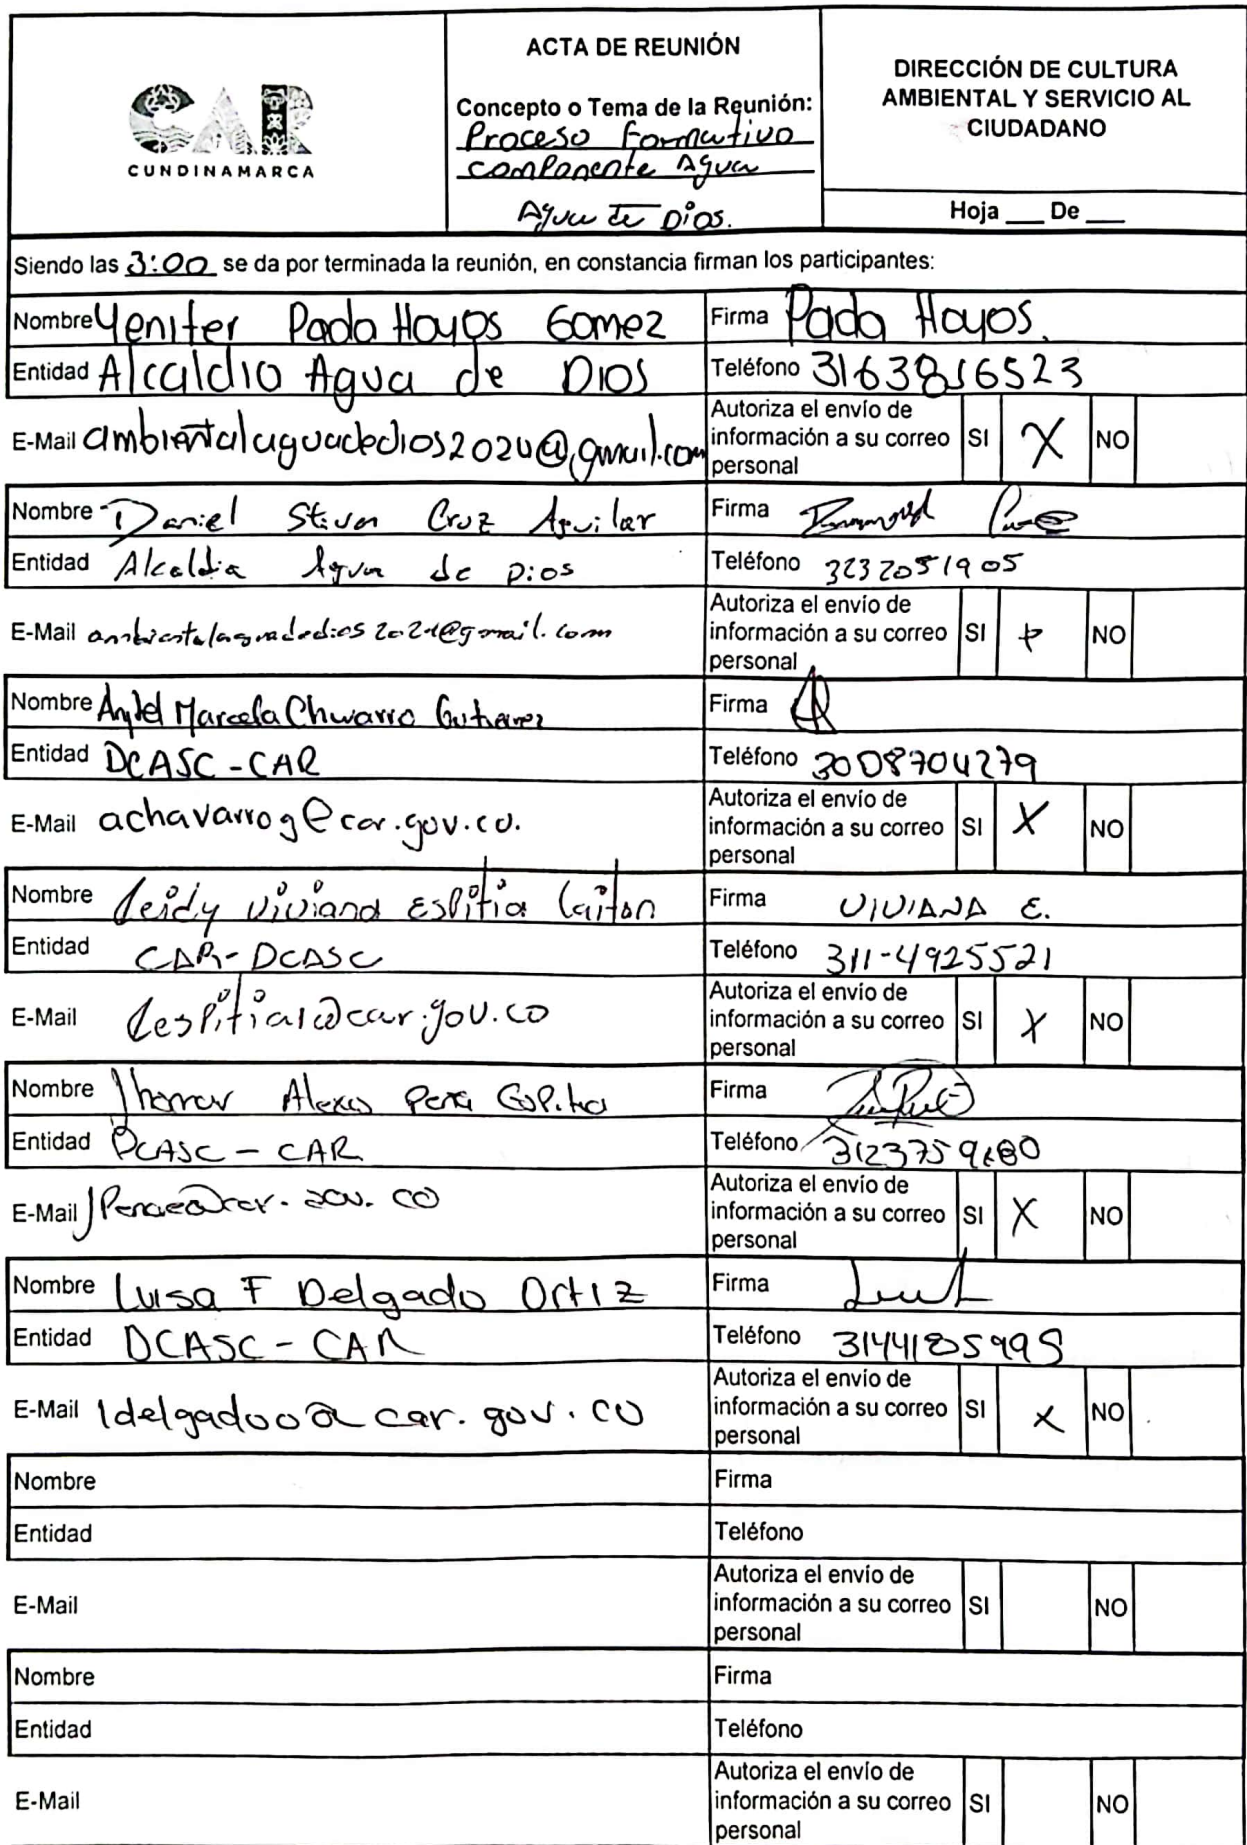 CAR
CUNDINAMARCA
ACTA DE REUNIÓN
Concepto o Tema de la Reunión:
Proceso Formativo
componente Agua
Agua de Dios.
DIRECCIÓN DE CULTURA
AMBIENTAL Y SERVICIO AL
CIUDADANO
Hoja ___ De ___
Siendo las 3:00 se da por terminada la reunión, en constancia firman los participantes:
Nombre Yenifer Paola Hoyos Gomez Firma Paola Hoyos.
Entidad Alcaldia Agua de Dios Teléfono 3163816523
E-Mail ambientalaguadedios2024@gmail.com
Autoriza el envío de
información a su correo SI X NO
personal
Nombre Daniel Stiven Cruz Aguilar Firma
Entidad Alcaldia Agua de Dios Teléfono 3232051905
E-Mail ambientalaguadedios2024@gmail.com
Autoriza el envío de
información a su correo SI x NO
personal
Nombre Marcela Gutierrez Firma
Entidad DCASC-CAR Teléfono 3008704279
E-Mail achavarrog@car.gov.co.
Autoriza el envío de
información a su correo SI X NO
personal
Nombre Leidy Viviana Espitia Laiton Firma VIVIANA E.
Entidad CAR-DCASC Teléfono 311-4925521
E-Mail lespitial@car.gov.co
Autoriza el envío de
información a su correo SI X NO
personal
Nombre Alexis Pena Espitia Firma
Entidad DCASC - CAR Teléfono
E-Mail jpenae@car.gov.co
Autoriza el envío de
información a su correo SI X NO
personal
Nombre Luisa F Delgado Ortiz Firma
Entidad DCASC - CAR Teléfono 3144185995
E-Mail ldelgadoo@car.gov.co
Autoriza el envío de
información a su correo SI x NO
personal
Nombre Firma
Entidad Teléfono
E-Mail
Autoriza el envío de
información a su correo SI NO
personal
Nombre Firma
Entidad Teléfono
E-Mail
Autoriza el envío de
información a su correo SI NO
personal